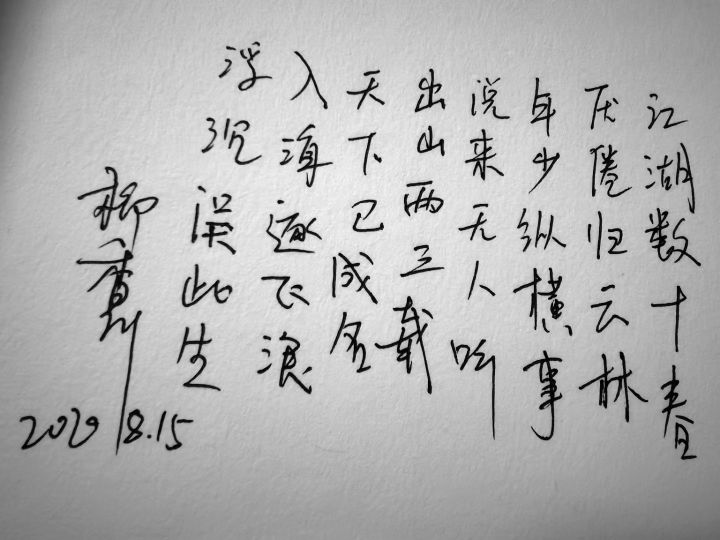 江湖数十春
厌倦归云林
年少纵横事
说来无人听
出山两三载
天下已成名
入海逐飞浪
浮沉误此生
2020.8.15